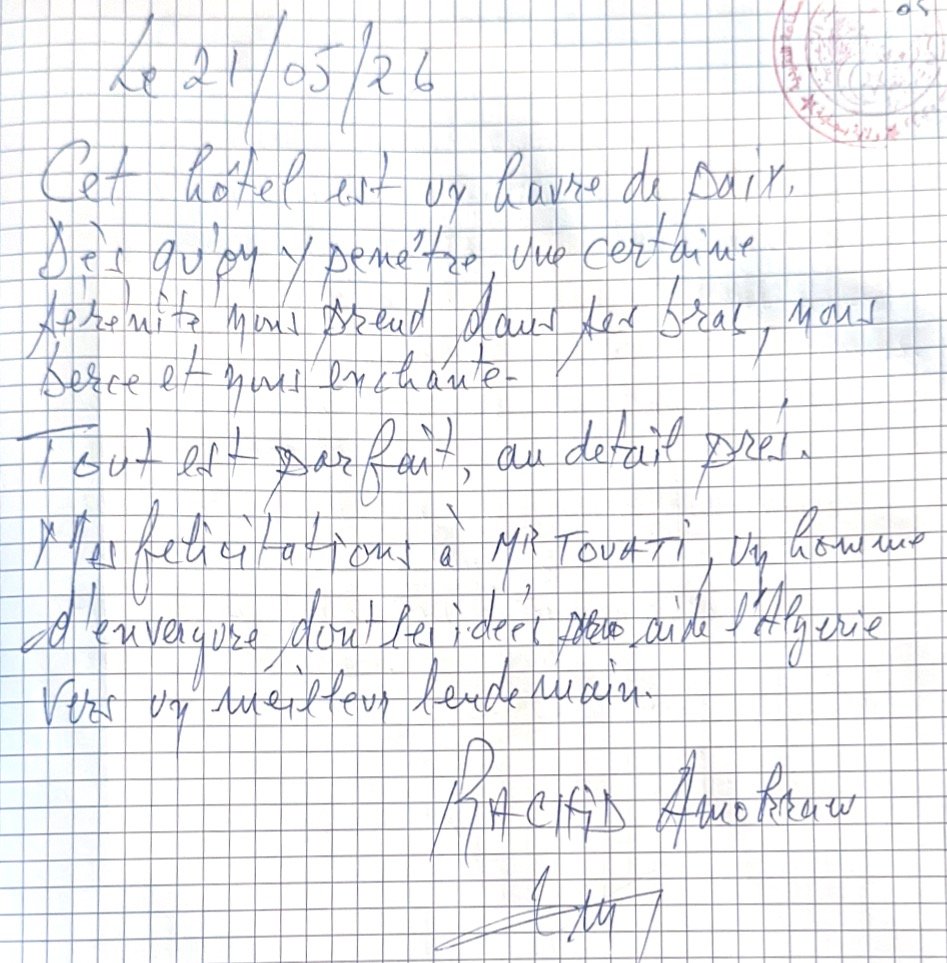 Le 21/05/26
Cet hôtel est un havre de paix.
Dès qu'on y penètre, une certaine
sérénité nous prend dans ses bras, nous
berce et nous enchante.
Tout est parfait, au detail près.
Mes felicitations à MR TOUATI, un homme
d'envergure dont les idées aide l'Algerie
vers un meilleur lendemain.
RACHID Amokrane